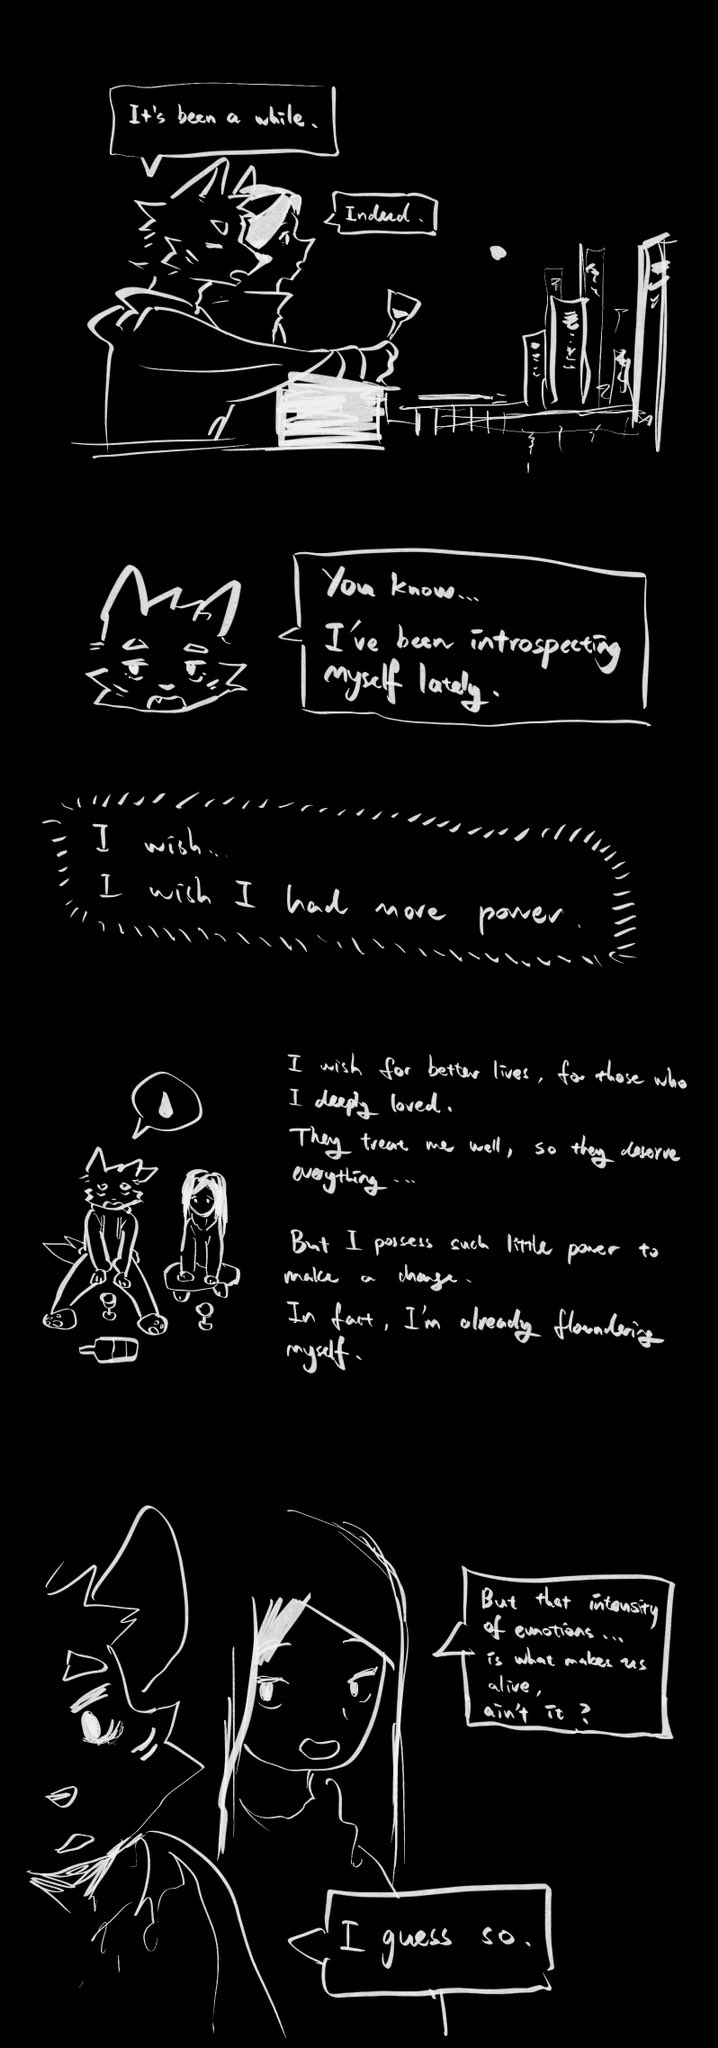 It's been a while.
Indeed.
You know...
I've been introspecting
myself lately.
I wish...
I wish I had more power.
I wish for better lives, for those who
I deeply loved.
They treat me well, so they deserve
everything...
But I possess such little power to
make a change.
In fact, I'm already floundering
myself.
But that intensity
of emotions...
is what makes us
alive,
ain't it?
I guess so.